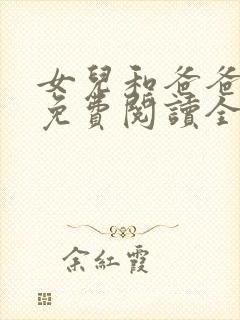 女兒和爸爸
免費閱讀全
余紅霞